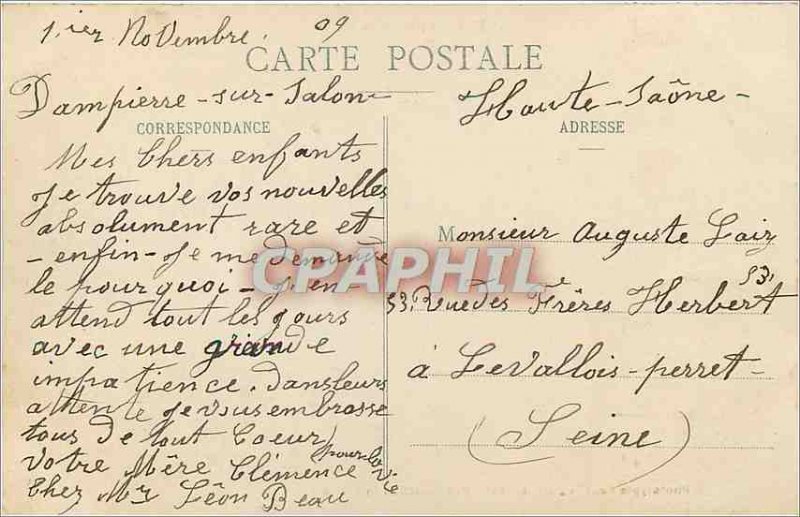 1.ier Novembre. 09
CARTE POSTALE
Dampierre-sur-Salon- Haute-Saône-
CORRESPONDANCE
Mes Chers enfants
Je trouve vos nouvelles
absolument rare et
-enfin-Je me demande
le pourquoi-J'en
attend tout les jours
avec une grande
impatience. Dans leurs
attente Je vous embrasse
tous de tout Coeur
pour la vie
Votre Mère Clémence
Chez Mr Léon Beau
ADRESSE
Monsieur Auguste
53, Rue des Frères Herbert 53,
à Levallois-perret-
(Seine)
CPAPHIL